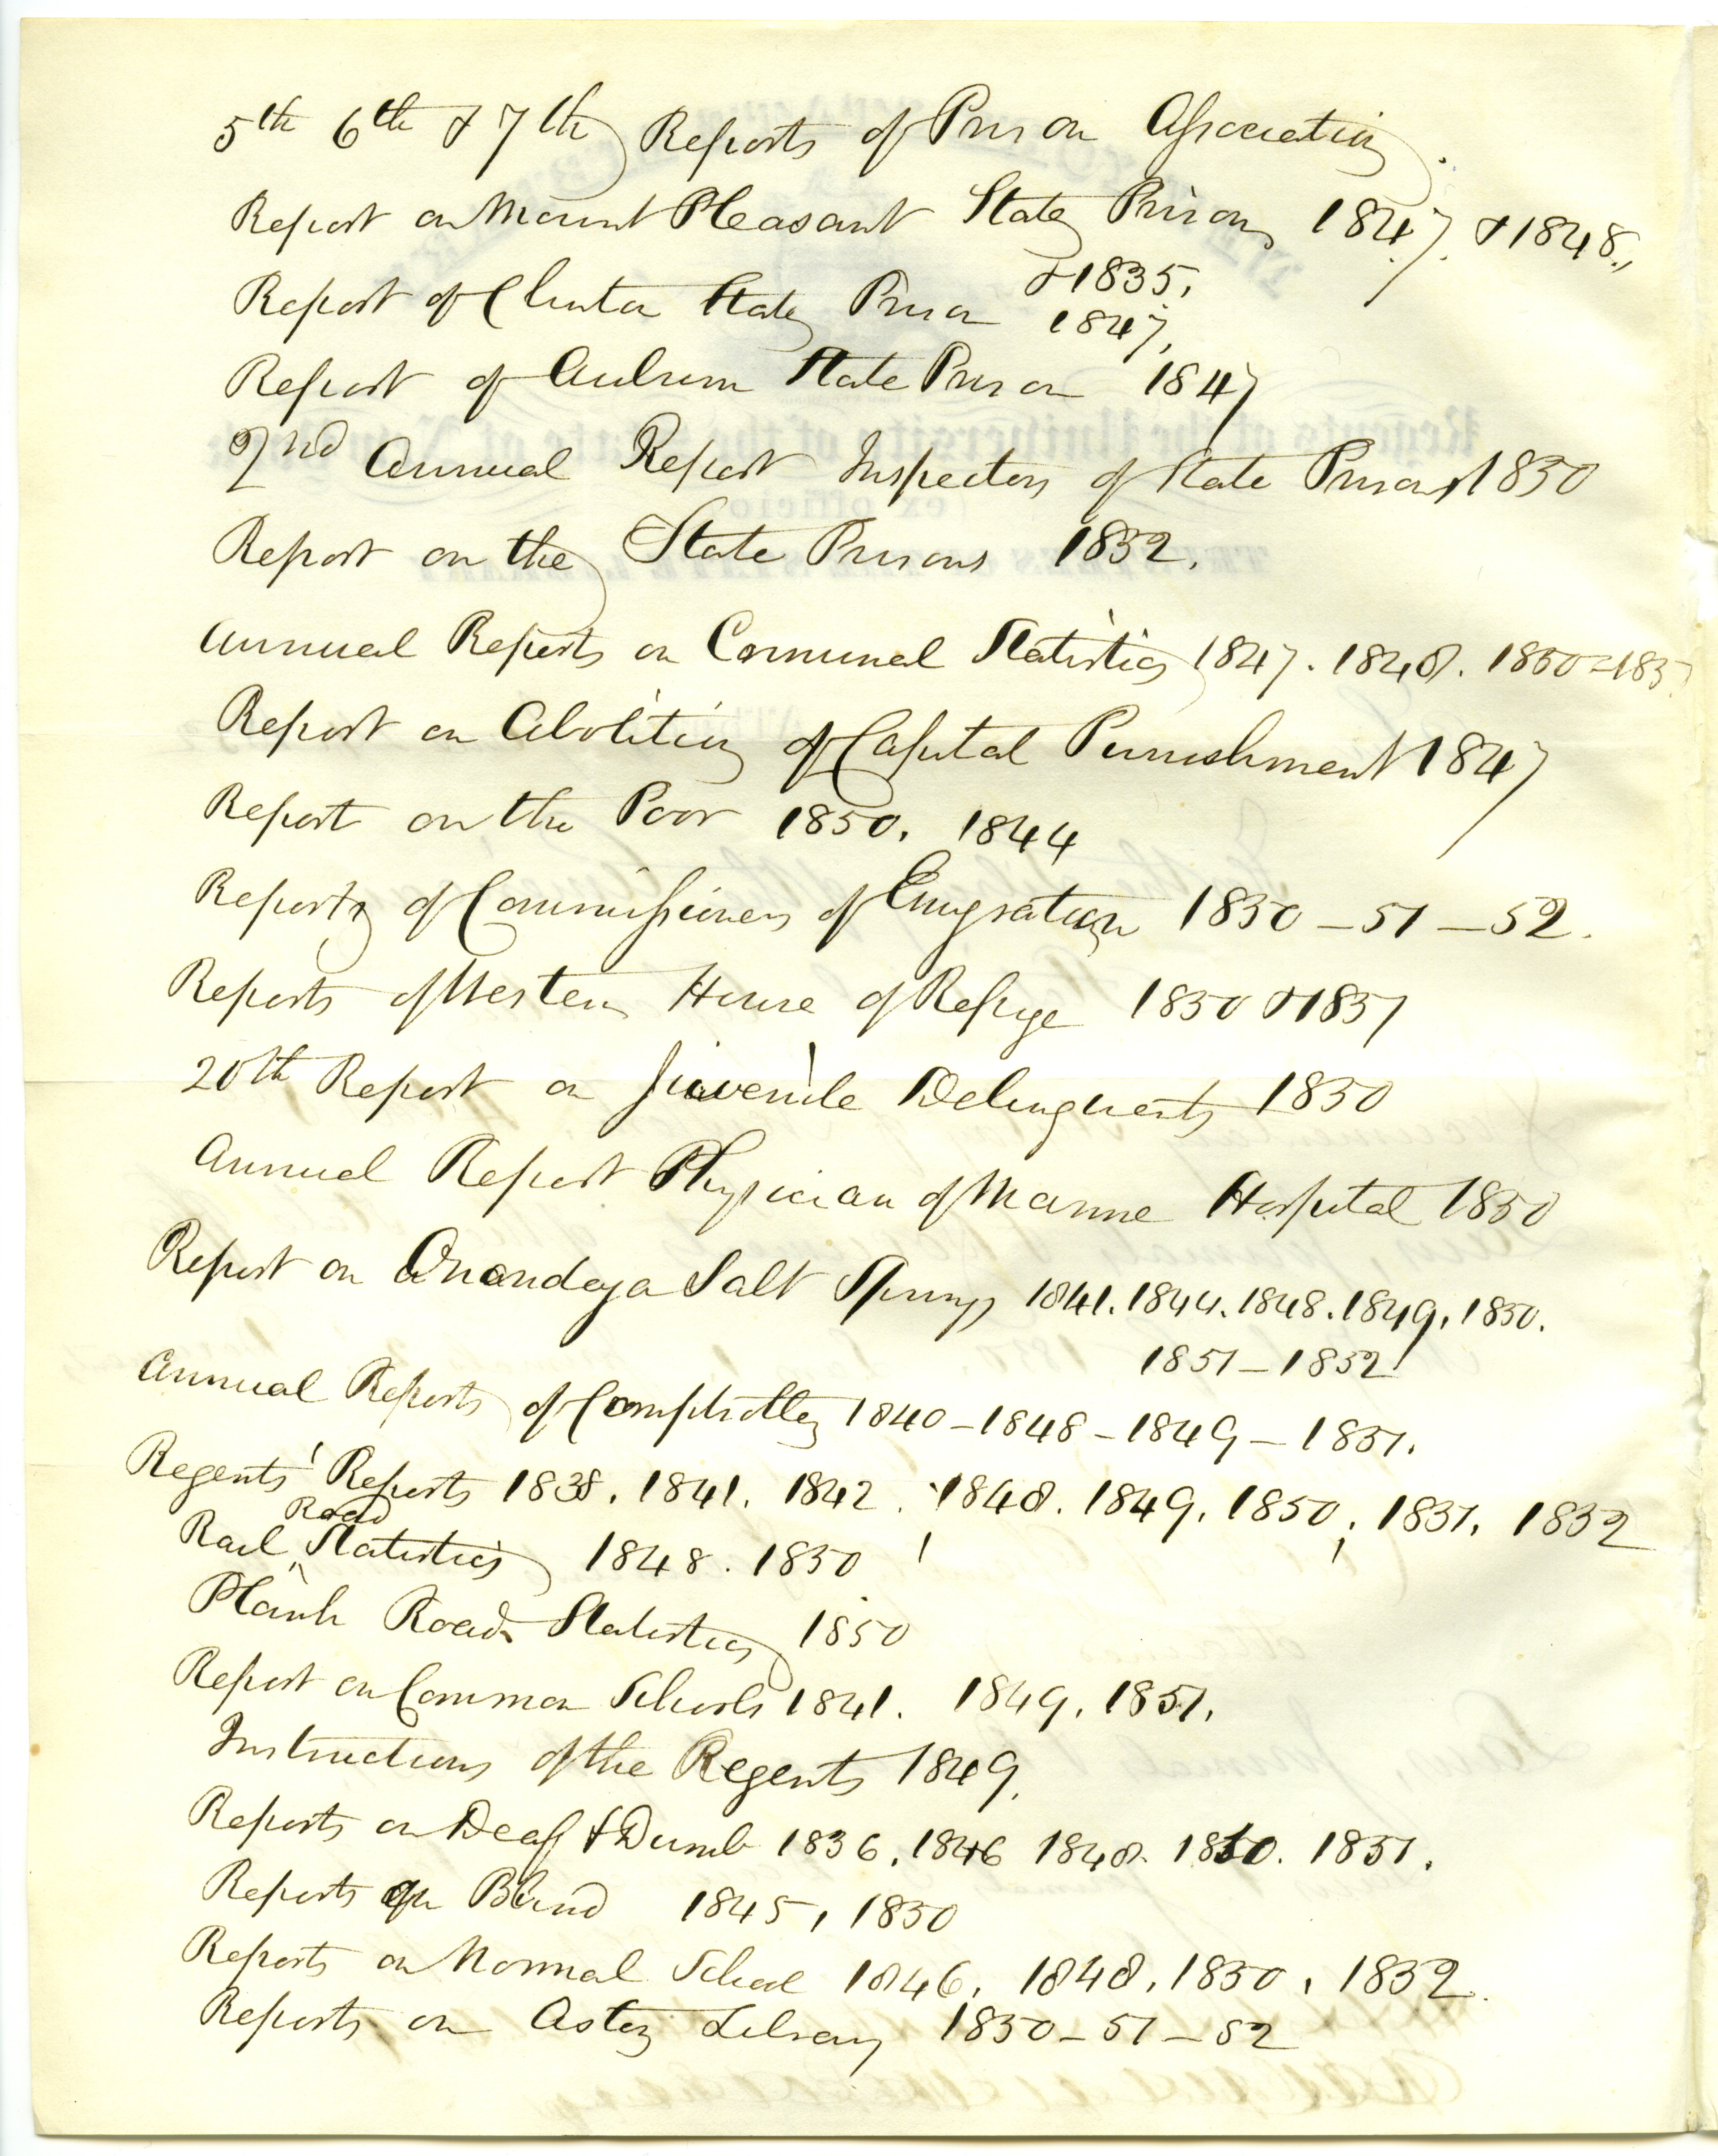 5th 6th & 7th Reports of Prison Association.
Report on Mount Pleasant State Prison 1847. & 1848.,
& 1835,
Report of Clinton State Prison 1847,
Report of Auburn State Prison 1847
2nd Annual Report Inspectors of State Prisons 1850
Report on the State Prisons 1852.
Annual Reports on Criminal Statistics 1847. 1848. 1850-185
Report on Abolition of Capital Punishment 1847
Report on the Poor 1850. 1844
Reports of Commissioners of Emigration 1850 - 51 - 52.
Reports of Western House of Refuge 1850 & 1851
20th Report on Juvenile Delinquents 1850
Annual Report Physician of Marine Hospital 1850
Report on Onondaga Salt Springs 1841. 1844. 1848. 1849, 1850.
1851 - 1852
Annual Reports of Comptroller 1840 - 1848 - 1849 - 1851.
Regents' Reports 1838. 1841. 1842. 1848. 1849. 1850, 1851. 1852
Road
Rail Statistics 1848. 1850
Plank Road Statistics 1850
Report on Common Schools 1841. 1849. 1851.
Instructions of the Regents 1849.
Reports on Deaf & Dumb 1836. 1846 1848. 1850. 1851.
Reports on Blind 1845, 1850
Reports on Normal School 1846. 1848. 1850, 1852.
Reports on Astor Library 1850 - 51 - 52